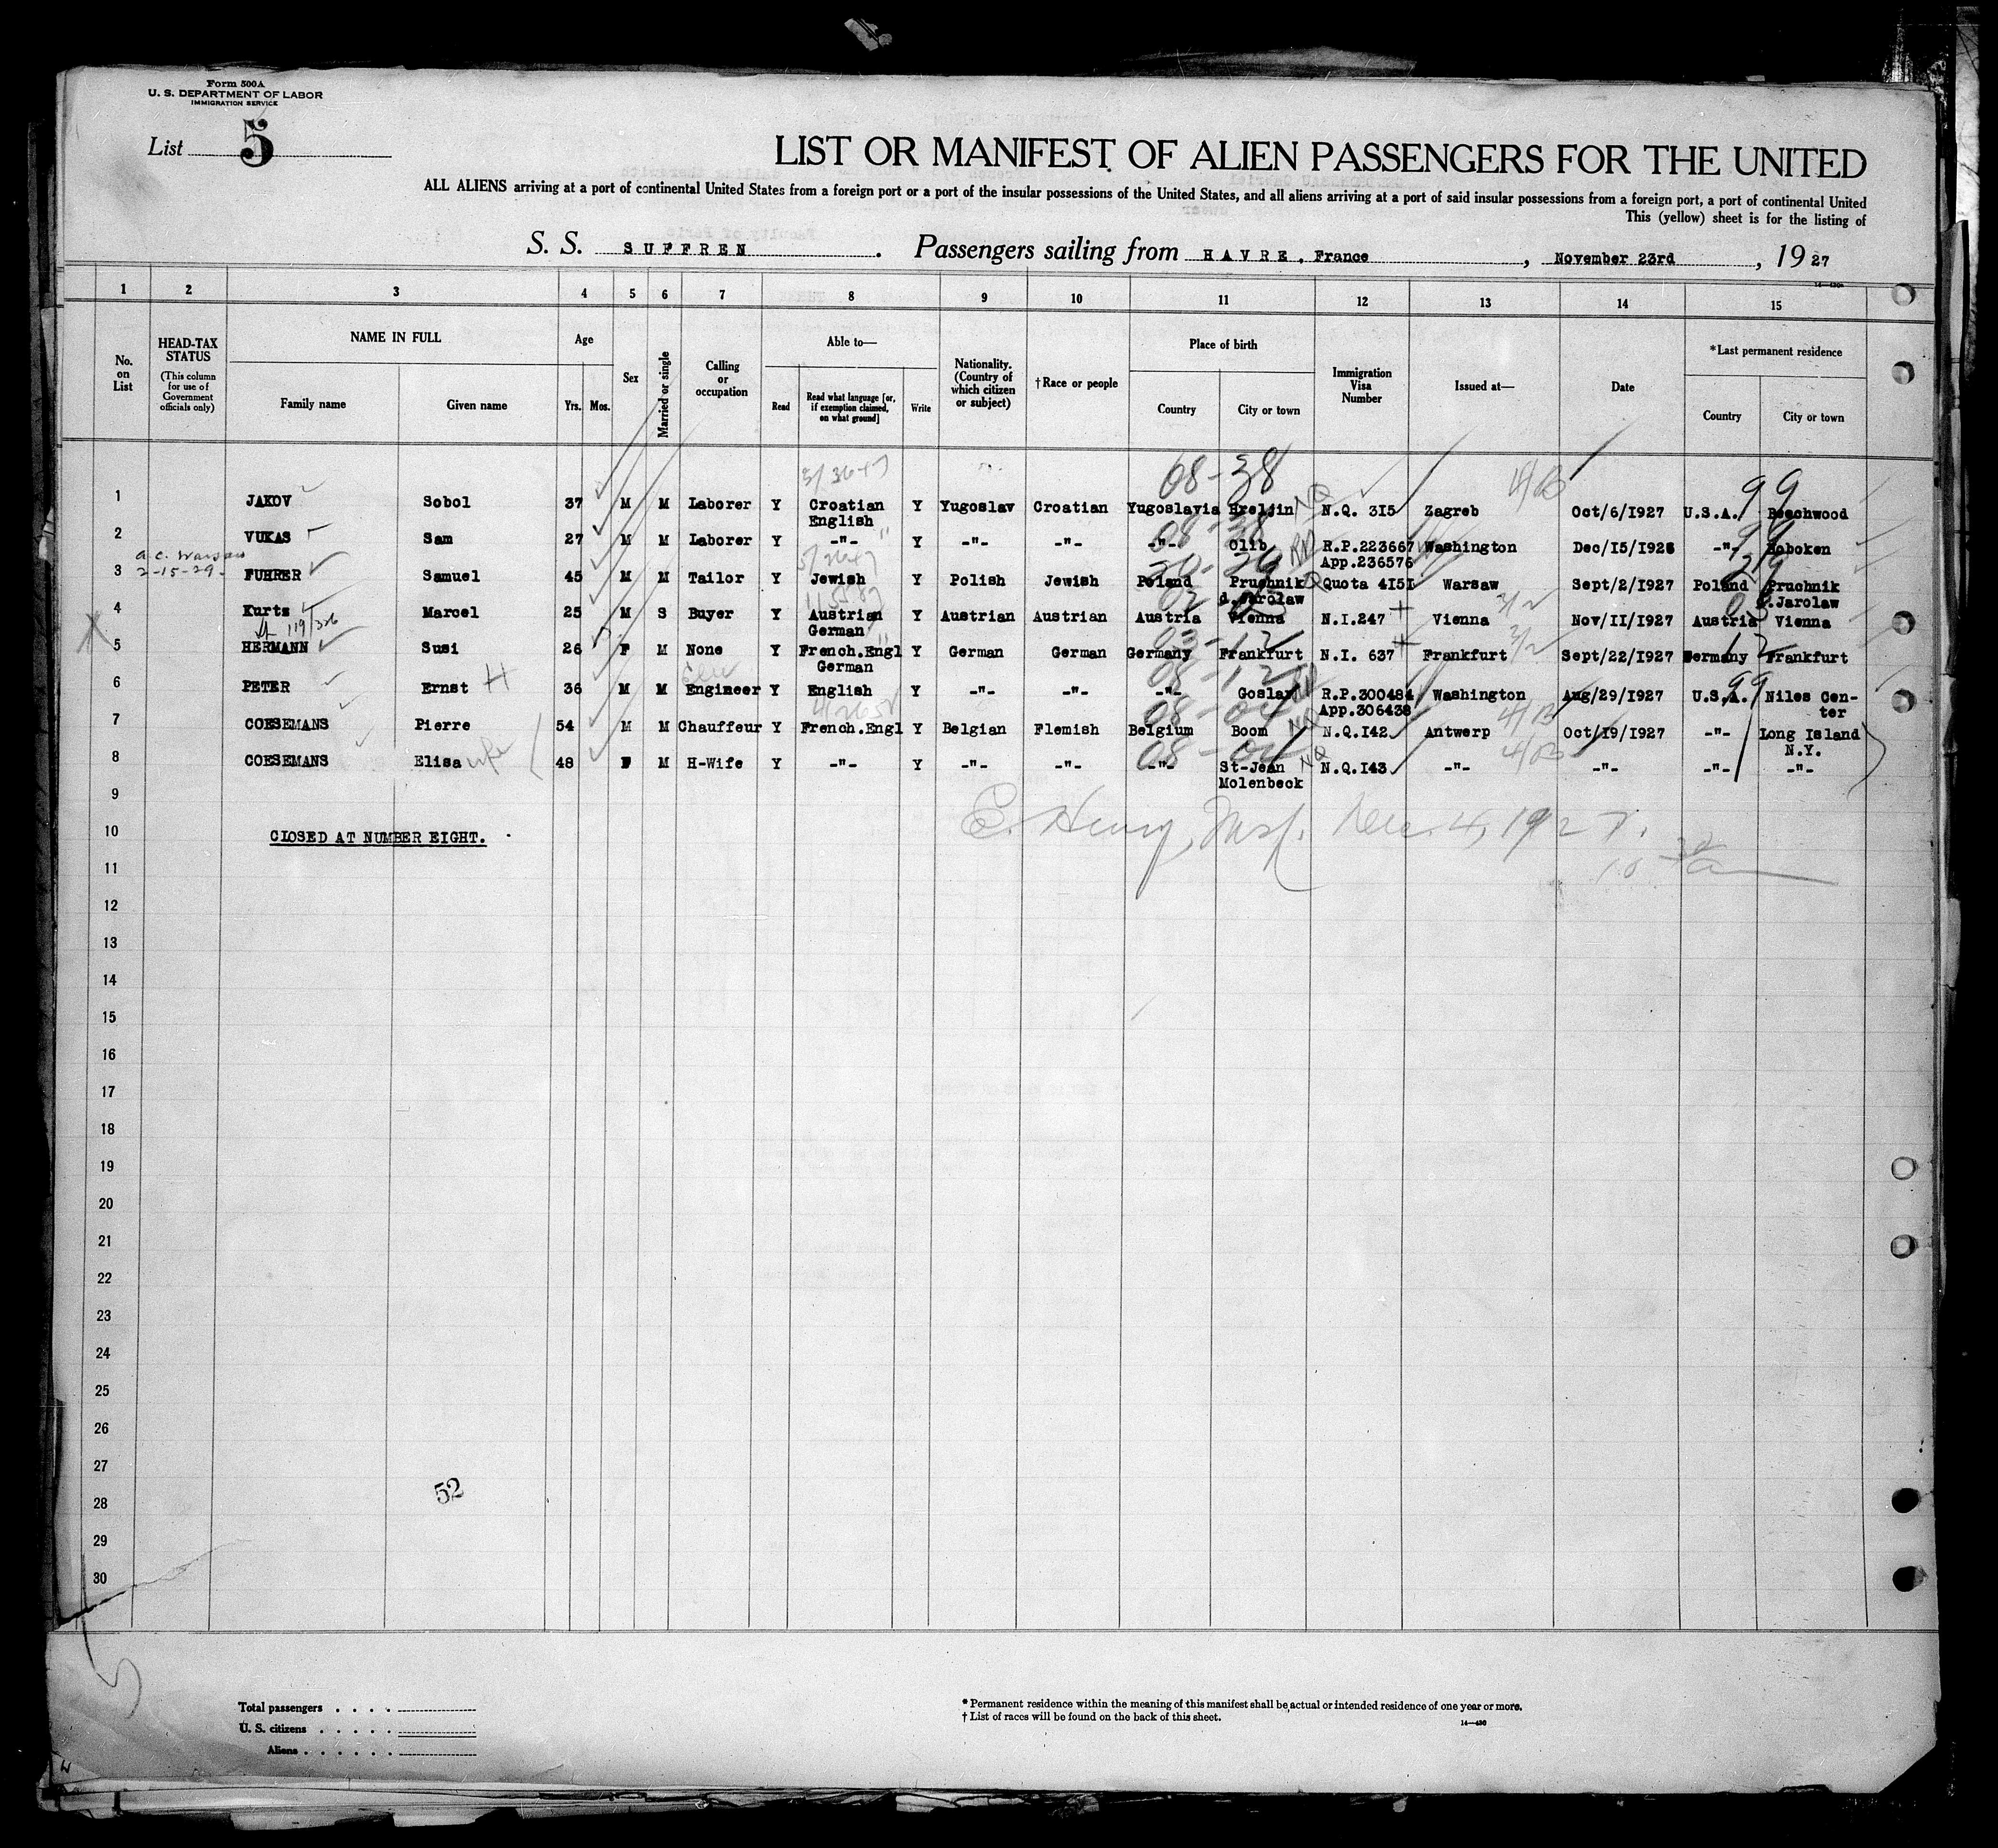 Form 500A
U. S. DEPARTMENT OF LABOR
IMMIGRATION SERVICE
List 5
LIST OR MANIFEST OF ALIEN PASSENGERS FOR THE UNITED
ALL ALIENS arriving at a port of continental United States from a foreign port or a port of the insular possessions of the United States, and all aliens arriving at a port of said insular possessions from a foreign port, a port of continental United
This (yellow) sheet is for the listing of
S. S. SUFFREN. Passengers sailing from HAVRE, France, November 23rd, 1927
1 2 3 4 5 6 7 8 9 10 11 12 13 14 15
No. on List
HEAD-TAX STATUS
(This column for use of Government officials only)
NAME IN FULL
Family name Given name
Age
Yrs. Mos.
Sex
Married or single
Calling or occupation
Able to—
Read
Read what language [or, if exemption claimed, on what ground]
Write
Nationality. (Country of which citizen or subject)
†Race or people
Place of birth
Country City or town
Immigration Visa Number
Issued at—
Date
*Last permanent residence
Country City or town
08-38 99
1 JAKOV Sobol 37 M M Laborer Y Croatian Y Yugoslav Croatian Yugoslavia Hreljin N.Q. 315 Zagreb Oct/6/1927 U.S.A. Beechwood
English
08-38 99
2 VUKAS Sam 27 M M Laborer Y -"- Y -"- -"- -"- Olib R.P.223667 Washington Dec/15/1926 -"- Hoboken
App.236576
a.c. Warsaw
2-15-29.
3 FUHRER Samuel 45 M M Tailor Y Jewish Y Polish Jewish Poland Pruchnik Quota 4151 Warsaw Sept/2/1927 Poland Pruchnik
d.Jarolaw d.Jarolaw
4 Kurtz Marcel 25 M S Buyer Y Austrian Y Austrian Austrian Austria Vienna N.I.247 Vienna 3/2 Nov/11/1927 Austria Vienna
German
119/326
03-12 12
5 HERMANN Susi 26 F M None Y French.Engl Y German German Germany Frankfurt N.I. 637 Frankfurt 3/2 Sept/22/1927 Germany Frankfurt
German
08-12 99
6 PETER Ernst H 36 M M Engineer Y English Y -"- -"- -"- Goslar R.P.300484 Washington Aug/29/1927 U.S.A. Niles Cen-
App.306438 ter
08-04
7 COESEMANS Pierre 54 M M Chauffeur Y French.Engl Y Belgian Flemish Belgium Boom NQ N.Q.142 Antwerp Oct/19/1927 -"- Long Island
N.Y.
08-04
8 COESEMANS Elisa wife 48 F M H-Wife Y -"- Y -"- -"- -"- St-Jean NQ N.Q.143 -"- -"- -"- -"-
Molenbeck
9
E. Henry, Insp. Dec. 4, 1927.
10 CLOSED AT NUMBER EIGHT.
11
12
13
14
15
16
17
18
19
20
21
22
23
24
25
26
27
52
28
29
30
Total passengers
U. S. citizens
Aliens
* Permanent residence within the meaning of this manifest shall be actual or intended residence of one year or more.
† List of races will be found on the back of this sheet.
14—430